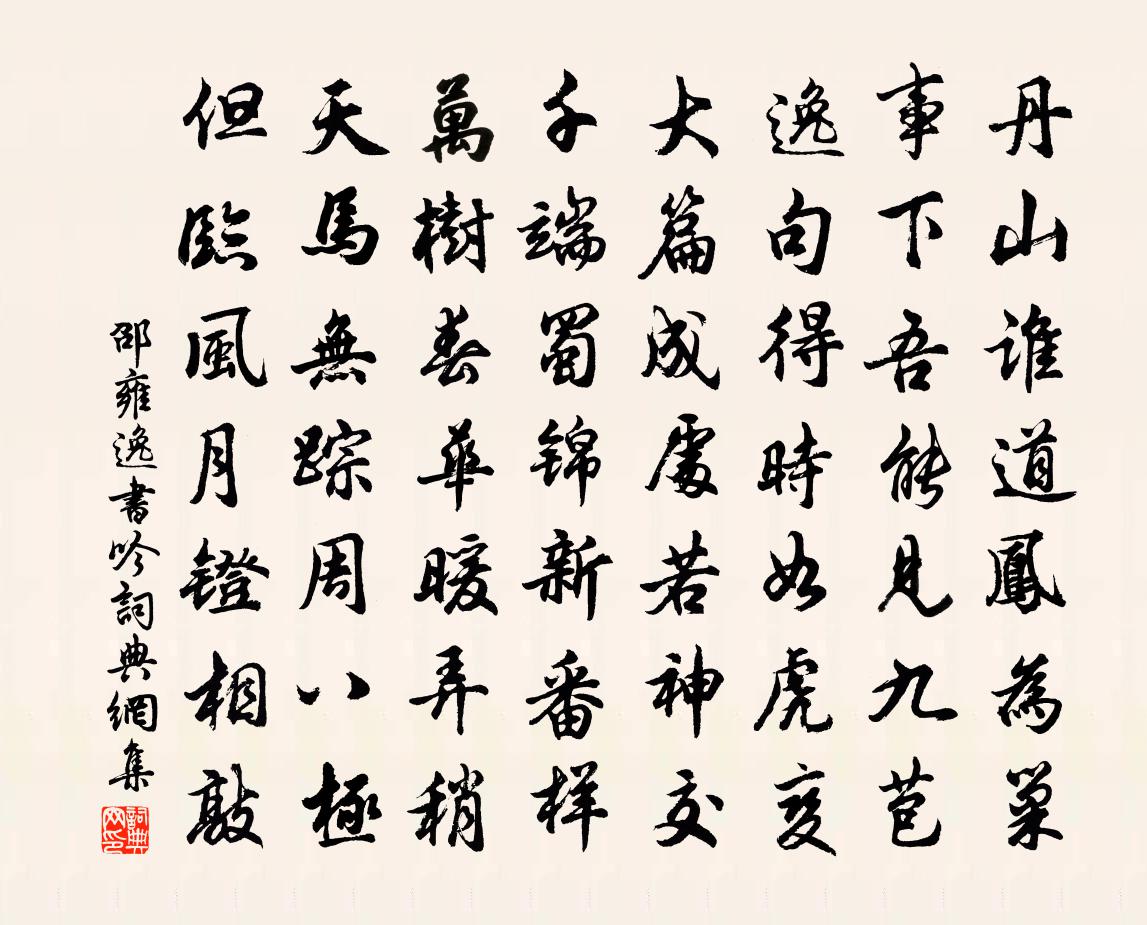 丹山誰道鳳為巢
事下吾能見九苞
逸句得時如虎變
大篇成處若神交
千端蜀錦新番样
萬樹春華暖弄稍
天馬無踪周八極
但臨風月鐙相敲
邵雍逸書吟詞典網集
詞典網印